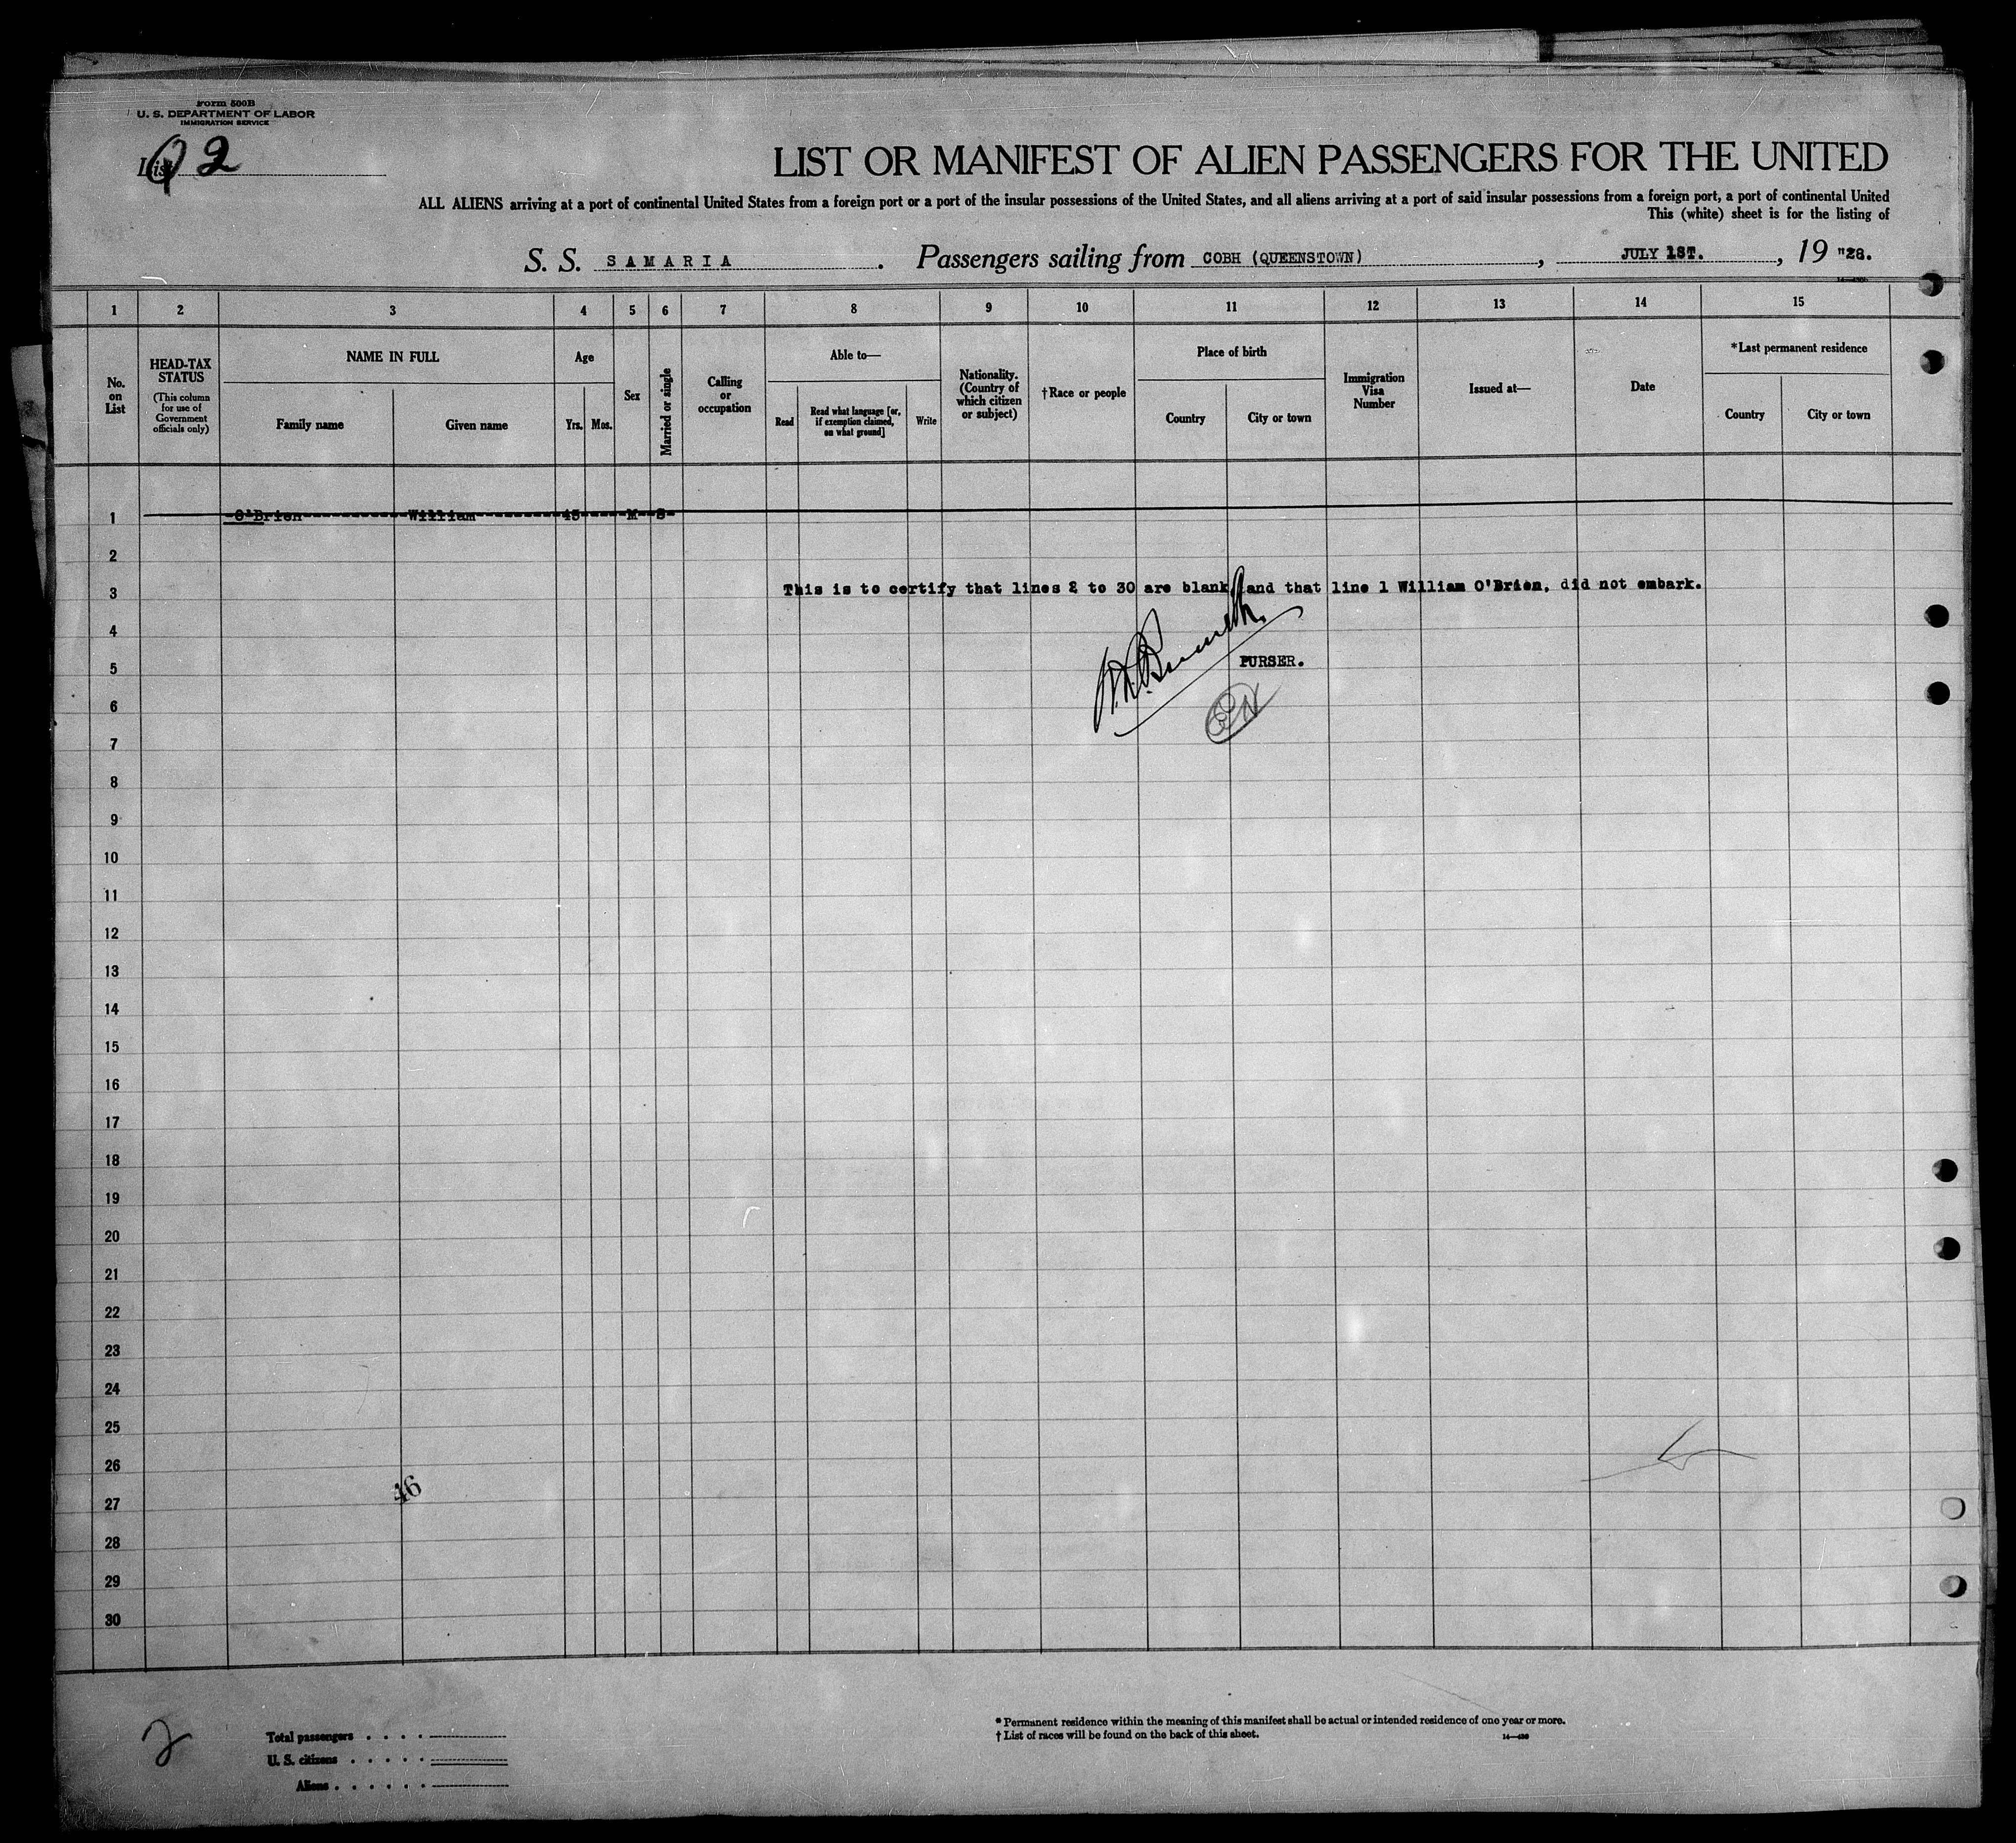 Form 500B
U. S. DEPARTMENT OF LABOR
IMMIGRATION SERVICE
List 2
LIST OR MANIFEST OF ALIEN PASSENGERS FOR THE UNITED
ALL ALIENS arriving at a port of continental United States from a foreign port or a port of the insular possessions of the United States, and all aliens arriving at a port of said insular possessions from a foreign port, a port of continental United
This (white) sheet is for the listing of
S. S. SAMARIA. Passengers sailing from COBH (QUEENSTOWN), JULY 1ST., 19 "28.
1 2 3 4 5 6 7 8 9 10 11 12 13 14 15
No. on List
HEAD-TAX STATUS
(This column for use of Government officials only)
NAME IN FULL
Family name
Given name
Age
Yrs. Mos.
Sex
Married or single
Calling or occupation
Able to—
Read
Read what language [or, if exemption claimed, on what ground]
Write
Nationality. (Country of which citizen or subject)
†Race or people
Place of birth
Country
City or town
Immigration Visa Number
Issued at—
Date
*Last permanent residence
Country
City or town
1 O'Brien William 45 M S
2
3 This is to certify that lines 2 to 30 are blank and that line 1 William O'Brien, did not embark.
4
5 PURSER.
6
7
8
9
10
11
12
13
14
15
16
17
18
19
20
21
22
23
24
25
26
46
27
28
29
30
2
Total passengers . . . .
U. S. citizens . . . . .
Aliens . . . . . .
* Permanent residence within the meaning of this manifest shall be actual or intended residence of one year or more.
† List of races will be found on the back of this sheet.